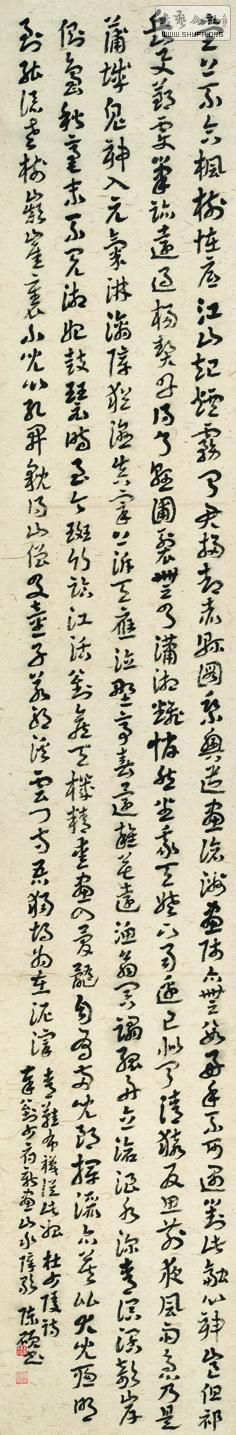 堂上不合楓樹怪底江山起煙霧聞君掃却赤縣圖乘興遣畫滄洲畫師亦無數好手不可遇對此融心神豈但祁
岳與鄭虔筆跡遠過楊契丹得非玄圃裂無乃瀟湘翻悄然坐我天姥下耳邊已似聞清猿反思前夜風雨急乃是
蒲城鬼神入元氣淋漓障猶濕真宰上訴天應泣野亭春還雜花遠漁翁暝蹋孤舟立滄浪水深青溟闊欹岸
側島秋毫末不見湘妃鼓瑟時至今斑竹臨江活劉侯天機精愛畫入骨髓自有兩兒郎揮灑亦莫比大兒聰明
到能添老樹巔崖裏小兒心孔開貌得山僧及童子若耶溪雲門寺吾獨胡為在泥滓
青鞋布襪從此始 杜少陵詩
奉劉少府新畫山水障歌 陳碩書
WWW.SHUFA.ORG